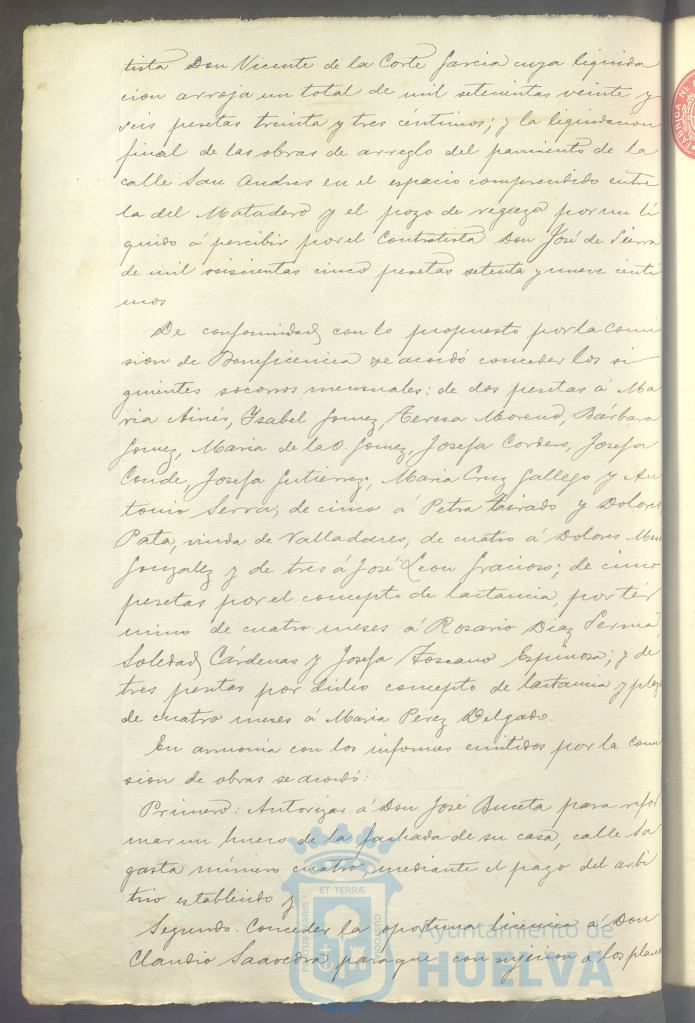 tista Don Vicente de la Corte Garcia cuya liquida
cion arroja un total de mil setecientas veinte y
seis pesetas treinta y tres céntimos; y la liquidacion
final de las obras de arreglo del pavimento de la
calle San Andres en el espacio comprendido entre
la del Matadero y el pozo de regaza por un lí
quido á percibir por el Contratista Don José de Sierra
de mil seiscientas cinco pesetas setenta y nueve centi
mos
De conformidad con lo propuesto por la Comi
sion de Beneficencia se acordó conceder los si
guientes socorros mensuales: de dos pesetas á Ma
ria Ainés, Ysabel Gomez, Teresa Moreno, Bárbara
Gomez, Maria de la O. Gomez, Josefa Cordero, Josefa
Conde, Josefa Gutierrez, Maria Cruz Gallego y An
tonio Serra; de cinco á Petra Tirado y Dolores
Pata, viuda de Valladares, de cuatro á Dolores
Gonzalez y de tres á José Leon Gracioso; de cinco
pesetas por el concepto de lactancia, por tér
mino de cuatro meses á Rosario Diaz
Soledad Cárdenas y Josefa Toscano Espinosa; y de
tres pesetas por dicho concepto de lactancia y plazo
de cuatro meses á Maria Perez Delgado.
En armonía con los informes emitidos por la Comi
sion de obras se acordó:
Primero: Autorizar á Don José Buceta para refor
mar un hueco de la fachada de su casa, calle Sa
gasta número cuatro, mediante el pago del arbi
trio establecido y
Segundo. Conceder la oportuna licencia á Don
Claudio Saavedra para que con sujecion á los planos
PORTUS MARIS ET TERRÆ CUSTODIA
Ayuntamiento de
HUELVA
FABRICA N